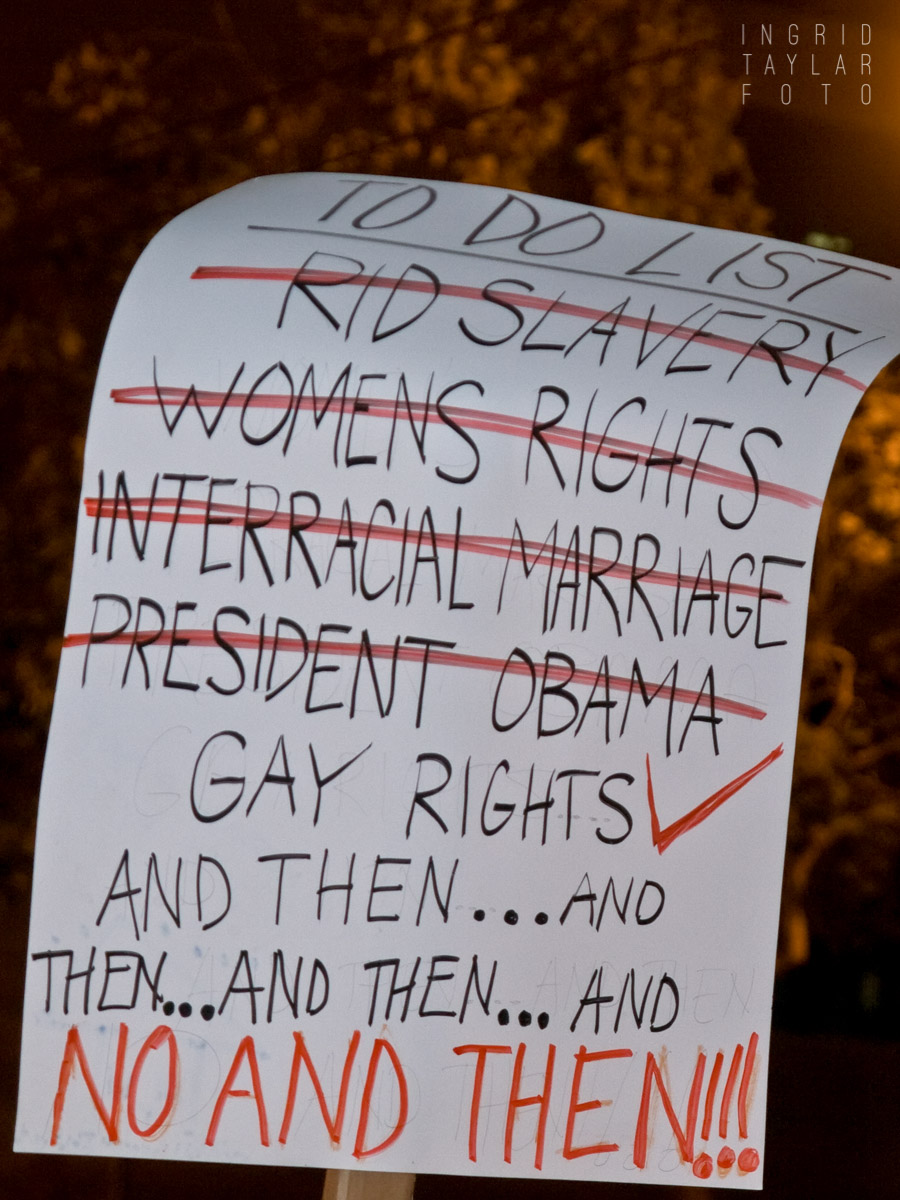 INGRID
TAYLAR
FOTO
TO DO LIST
RID SLAVERY
WOMENS RIGHTS
INTERRACIAL MARRIAGE
PRESIDENT OBAMA
GAY RIGHTS ✓
AND THEN...AND
THEN...AND THEN... AND
NO AND THEN!!!